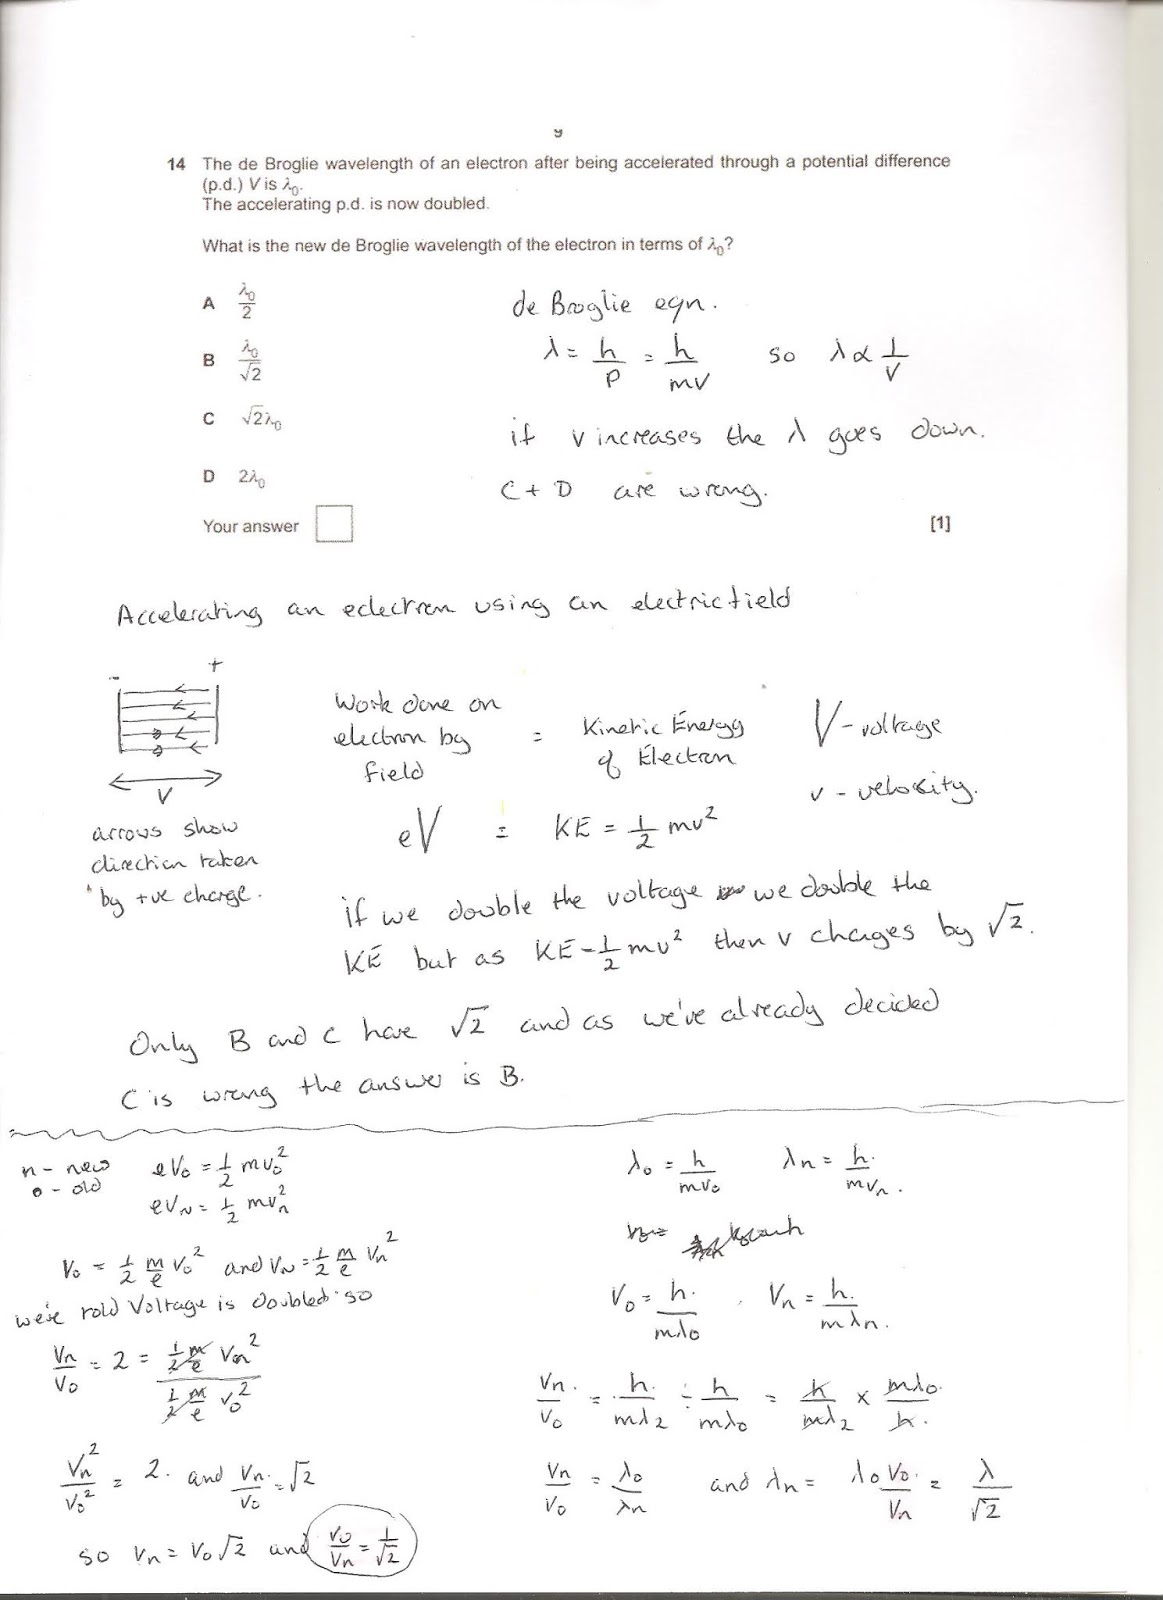 9
14 The de Broglie wavelength of an electron after being accelerated through a potential difference
(p.d.) V is λ₀.
The accelerating p.d. is now doubled.
What is the new de Broglie wavelength of the electron in terms of λ₀?
A λ₀/2
B λ₀/√2
C √2λ₀
D 2λ₀
Your answer [1]
de Broglie eqn.
λ = h/p = h/mv so λ ∝ 1/v
if v increases the λ goes down.
C + D are wrong.
Accelerating an eclectron using an electric field
- +
V
arrows show
direction taken
by +ve charge.
Work done on
electron by
field
= Kinetic Energy
of Electron
V - voltage
v - velocity.
eV = KE = 1/2 mv²
if we double the voltage we double the
KE but as KE - 1/2 mv² then v chages by √2.
Only B and C have √2 and as we've already decided
C is wrong the answer is B.
n - new
o - old
eV₀ = 1/2 mv₀²
eVN = 1/2 mvn²
V₀ = 1/2 m/e v₀² and VN = 1/2 m/e Vn²
we're told Voltage is doubled so
Vn/V₀ = 2 = 1/2 m/e Vn² / 1/2 m/e v₀²
Vn²/V₀² = 2. and Vn/V₀ = √2
so Vn = V₀√2 and V₀/Vn = 1/√2
λ₀ = h/mv₀ λn = h/mvn.
V₀ = h/mλ₀ , Vn = h/mλn.
Vn/V₀ = h/mλ₂ ÷ h/mλ₀ = h/mλ₂ × mλ₀/h.
Vn/V₀ = λ₀/λn and λn = λ₀V₀/Vn = λ/√2